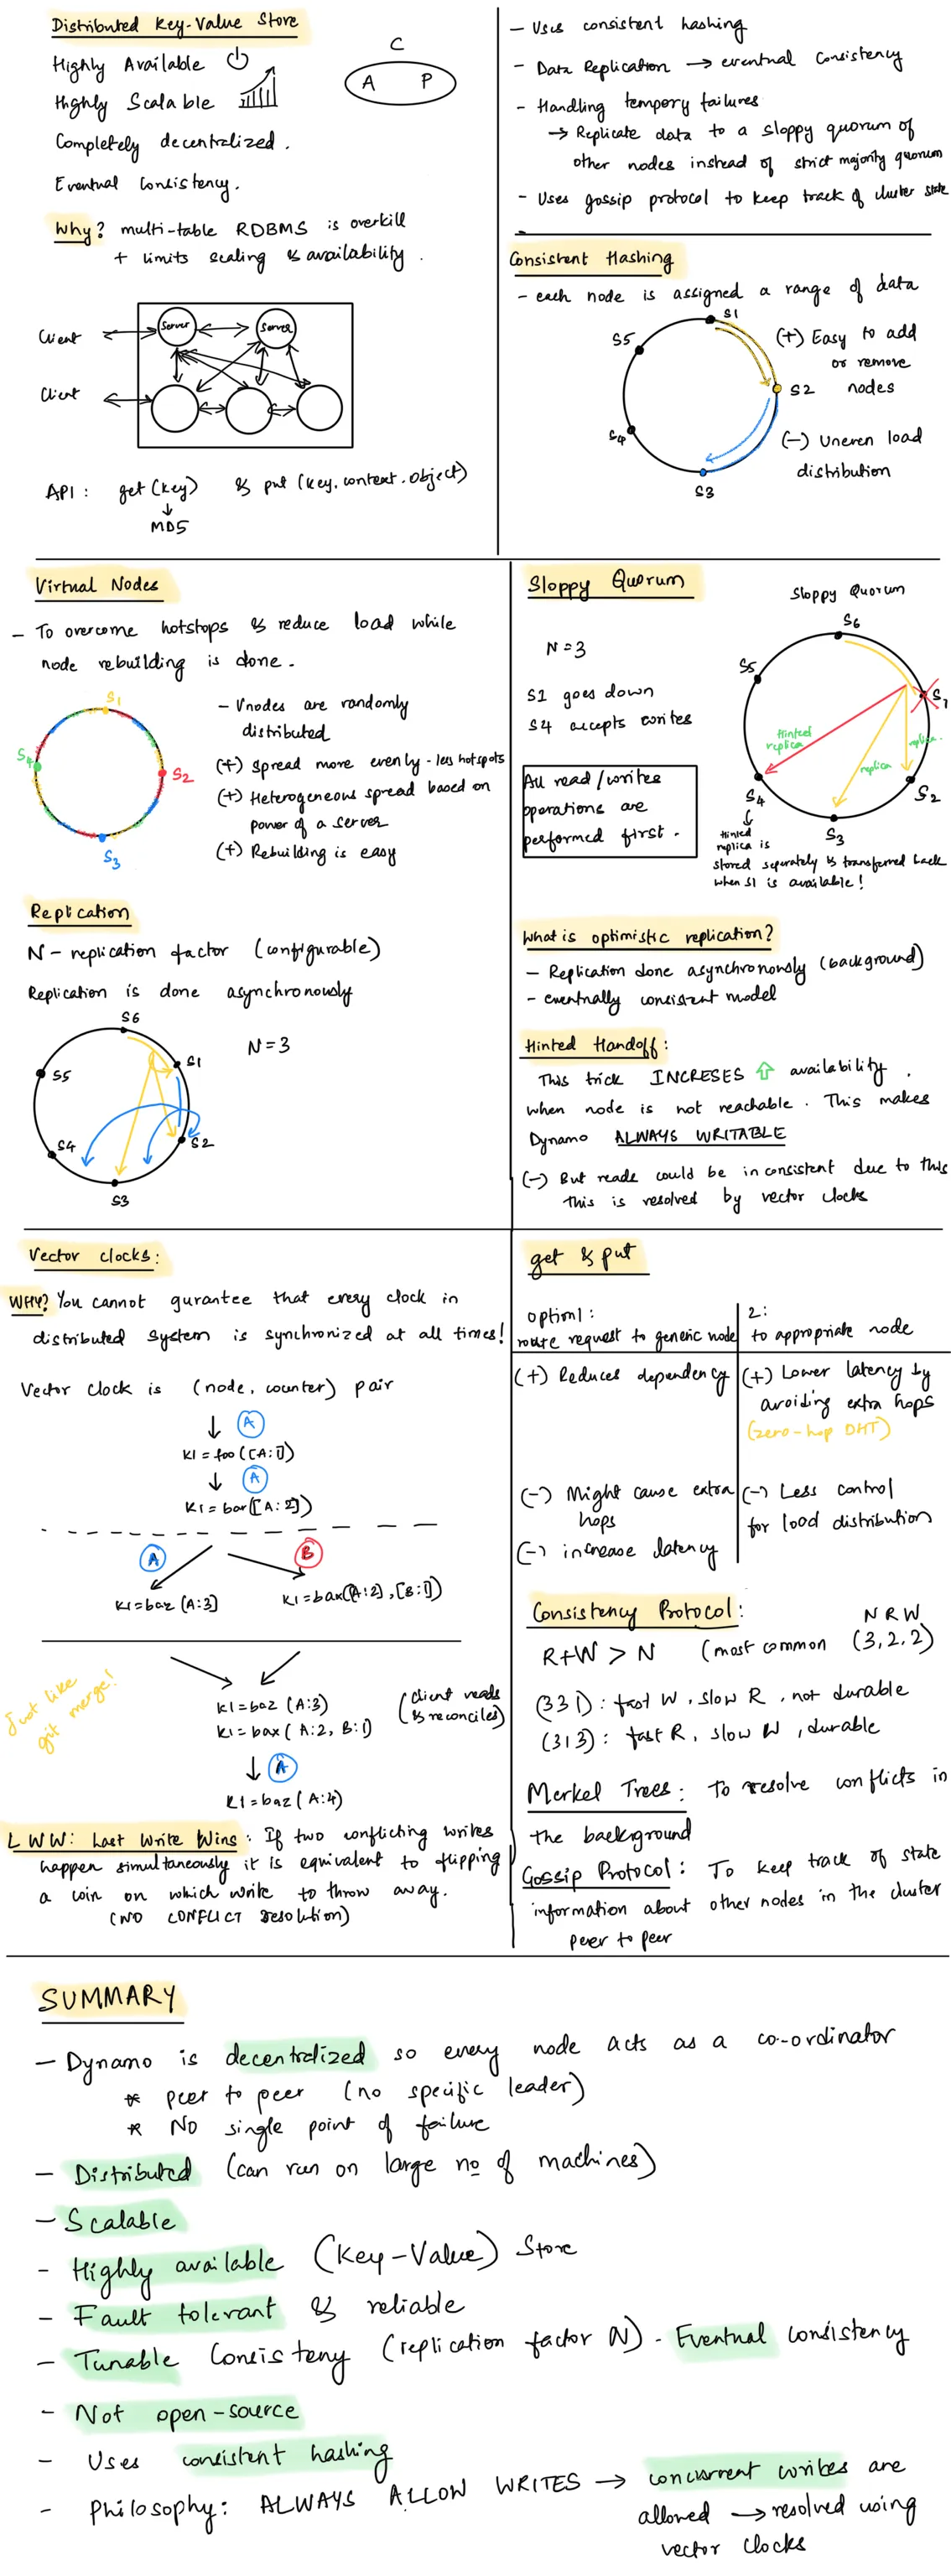 Distributed Key-Value Store
Highly Available
Highly Scalable
Completely decentralized.
Eventual Consistency.
C
A P
Why? multi-table RDBMS is overkill
+ limits scaling & availability.
Client
Server
Server
Client
API: get (key) & put (key, context, object)
MD5
- Uses consistent hashing
- Data Replication → eventual consistency
- Handling tempory failures
→ Replicate data to a sloppy quorum of
other nodes instead of strict majority quorum
- Uses gossip protocol to keep track of cluster state
Consistent Hashing
- each node is assigned a range of data
S1
S5
S2
S4
S3
(+) Easy to add
or remove
nodes
(-) Uneven load
distribution
Virtual Nodes
- To overcome hotstops & reduce load while
node rebuilding is done.
S1
S4
S2
S3
- Vnodes are randomly
distributed
(+) Spread more evenly - less hotspots
(+) Heterogeneous spread based on
power of a server
(+) Rebuilding is easy
Replication
N - replication factor (configurable)
Replication is done asynchronously
S6
S1
S5
S4
S2
S3
N=3
Sloppy Quorum
N=3
S1 goes down
S4 accepts writes
All read/writes
operations are
performed first.
Sloppy Quorum
S6
S5
S1
Hinted
replica
replica
replica.
S4
S2
S3
Hinted
replica is
stored separately & transferred back
when S1 is available!
What is optimistic replication?
- Replication done asynchronously (background)
- eventually consistent model
Hinted Handoff:
This trick INCRESES ⇧ availability.
when node is not reachable. This makes
Dynamo ALWAYS WRITABLE
(-) But reads could be inconsistent due to this
this is resolved by vector clocks
Vector clocks:
WHY? You cannot gurantee that every clock in
distributed system is synchronized at all times!
Vector clock is (node, counter) pair
↓ A
K1 = foo ([A:1])
↓ A
K1 = bar([A:2])
A
B
K1=baz (A:3]
K1=bax([A:2], [B:1])
Just like
git merge!
K1=baz (A:3)
K1=bax (A:2, B:1)
(client reads
& reconciles)
↓ A
K1=baz (A:4)
LWW: Last Write Wins: If two conflicting writes
happen simultaneously it is equivalent to flipping
a coin on which write to throw away.
(NO CONFLICT resolution)
get & put
option1:
route request to generic node
2:
to appropriate node
(+) Reduces dependency
(+) Lower latency by
avoiding extra hops
(zero-hop DHT)
(-) Might cause extra
hops
(-) increase latency
(-) Less control
for load distribution
Consistency Protocol:
N R W
R+W > N (most common (3,2,2)
(3 3 1): fast W, slow R, not durable
(3 1 3): fast R, slow W, durable
Merkel Trees: To resolve conflicts in
the background
Gossip Protocol: To keep track of state
information about other nodes in the cluster
peer to peer
SUMMARY
- Dynamo is decentralized so every node acts as a co-ordinator
* peer to peer (no specific leader)
* No single point of failure
- Distributed (can run on large no of machines)
- Scalable
- Highly available (Key-Value) Store
- Fault tolerant & reliable
- Tunable Consisteny (replication factor N) - Eventual consistency
- Not open-source
- Uses consistent hashing
- Philosophy: ALWAYS ALLOW WRITES → concurrent writes are
allowed → resolved using
vector clocks